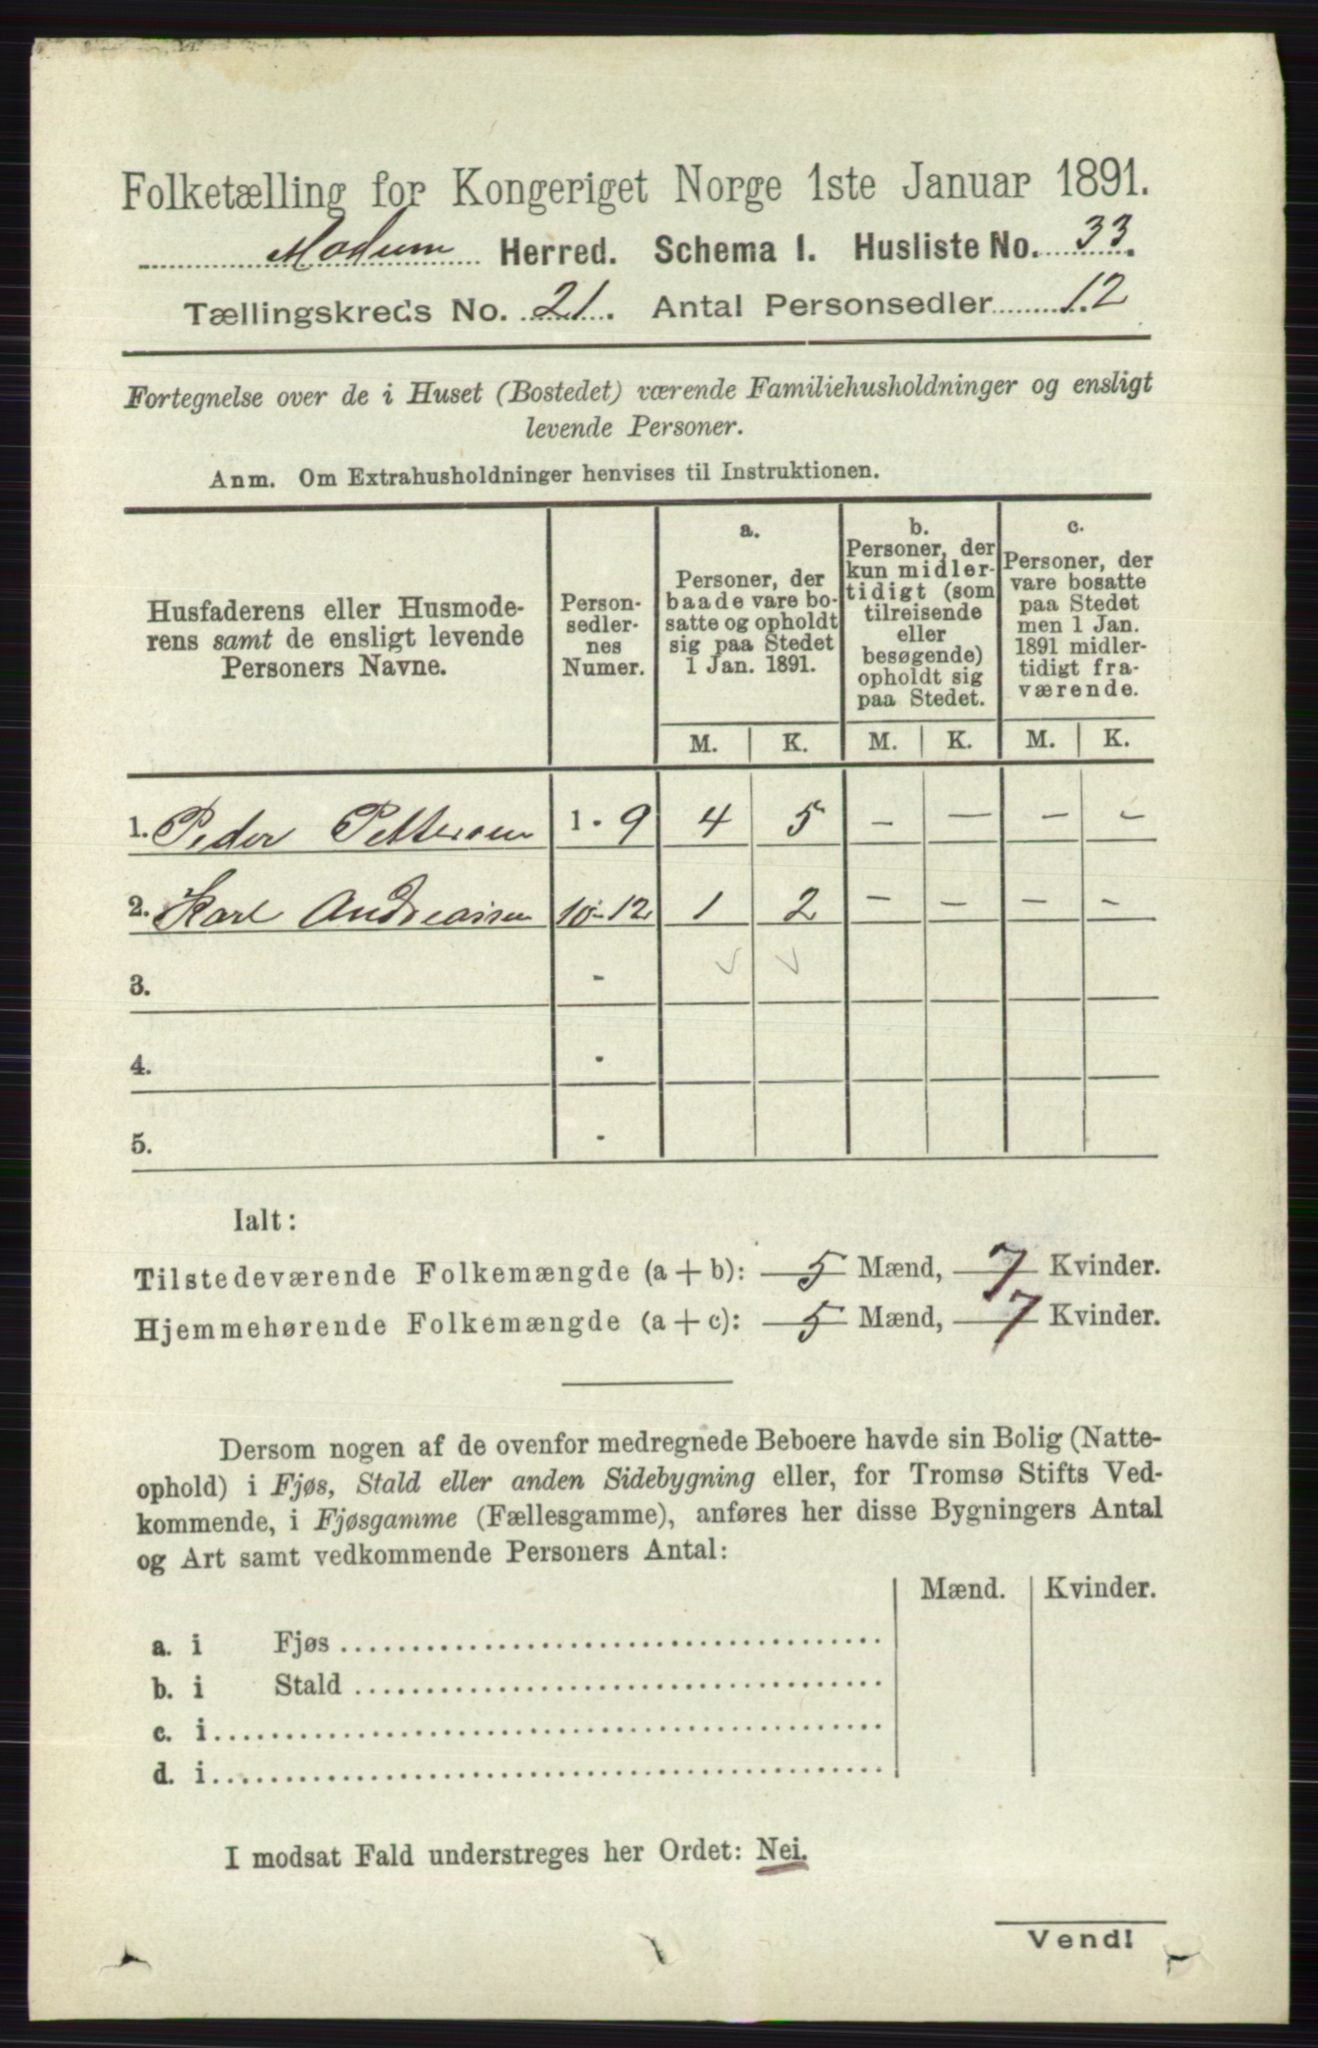 Folketælling for Kongeriget Norge 1ste Januar 1891.
Modum Herred. Schema I. Husliste No. 33.
Tællingskreds No. 21. Antal Personsedler 12
Fortegnelse over de i Huset (Bostedet) værende Familiehusholdninger og ensligt
levende Personer.
Anm. Om Extrahusholdninger henvises til Instruktionen.
Husfaderens eller Husmode-
rens samt de ensligt levende
Personers Navne.
Person-
sedler-
nes
Numer.
a.
Personer, der
baade vare bo-
satte og opholdt
sig paa Stedet
1 Jan. 1891.
b.
Personer, der
kun midler-
tidigt (som
tilreisende
eller
besøgende)
opholdt sig
paa Stedet.
c.
Personer, der
vare bosatte
paa Stedet
men 1 Jan.
1891 midler-
tidigt fra-
værende.
M. K. M. K. M. K.
1. Peder Pettersen 1 - 9 4 5 — — — —
2. Karl Andreassen 10-12 1 2 — — — —
3. -
4. -
5. -
Ialt:
Tilstedeværende Folkemængde (a + b): 5 Mænd, 7 Kvinder.
Hjemmehørende Folkemængde (a + c): 5 Mænd, 7 Kvinder.
Dersom nogen af de ovenfor medregnede Beboere havde sin Bolig (Natte-
ophold) i Fjøs, Stald eller anden Sidebygning eller, for Tromsø Stifts Ved-
kommende, i Fjøsgamme (Fællesgamme), anføres her disse Bygningers Antal
og Art samt vedkommende Personers Antal:
Mænd. Kvinder.
a. i Fjøs
b. i Stald
c. i
d. i
I modsat Fald understreges her Ordet: Nei.
Vend!